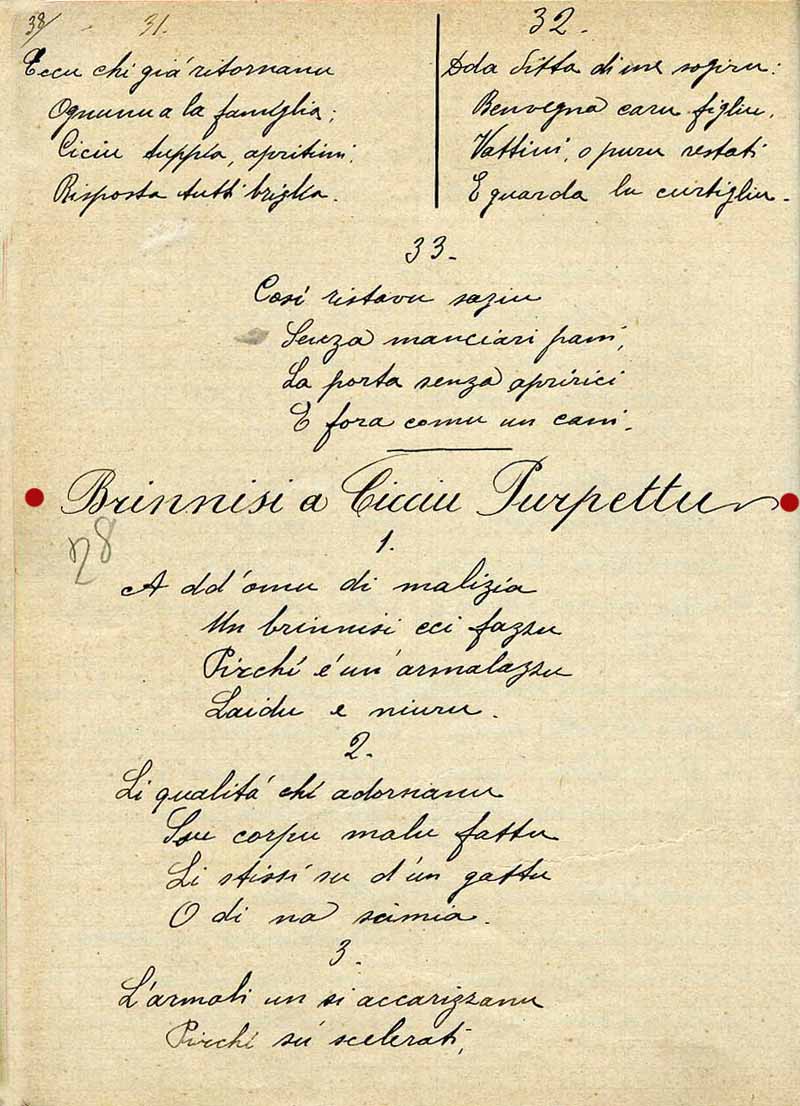 38/
31.
Eccu chi giá ritornanu
Ognunu a la famiglia;
Ciciu tuppía, apritimi.
Risposta tutti briglia.
32.
Dda ditta di me soggiru:
Benvegna caru figliu,
Vattini, o puru restati
E guarda lu curtigliu.
33.
Cosí ristavu saziu
Senza manciari pani,
La porta senza apririci
E fora comu un cani.
Brinnisi a Cicciu Purpettu
28
1.
A dd'omu di malizia
Un brinnisi cci fazzu
Pirchí é un'armalazzu
Laidu e niuru.
2.
Li qualitá chí adornanu
Sou corpu malu fattu
Li stissí su d'un gattu
O di na scimia.
3.
L'armali un si accarizzanu
Pirchí sú scelerati,